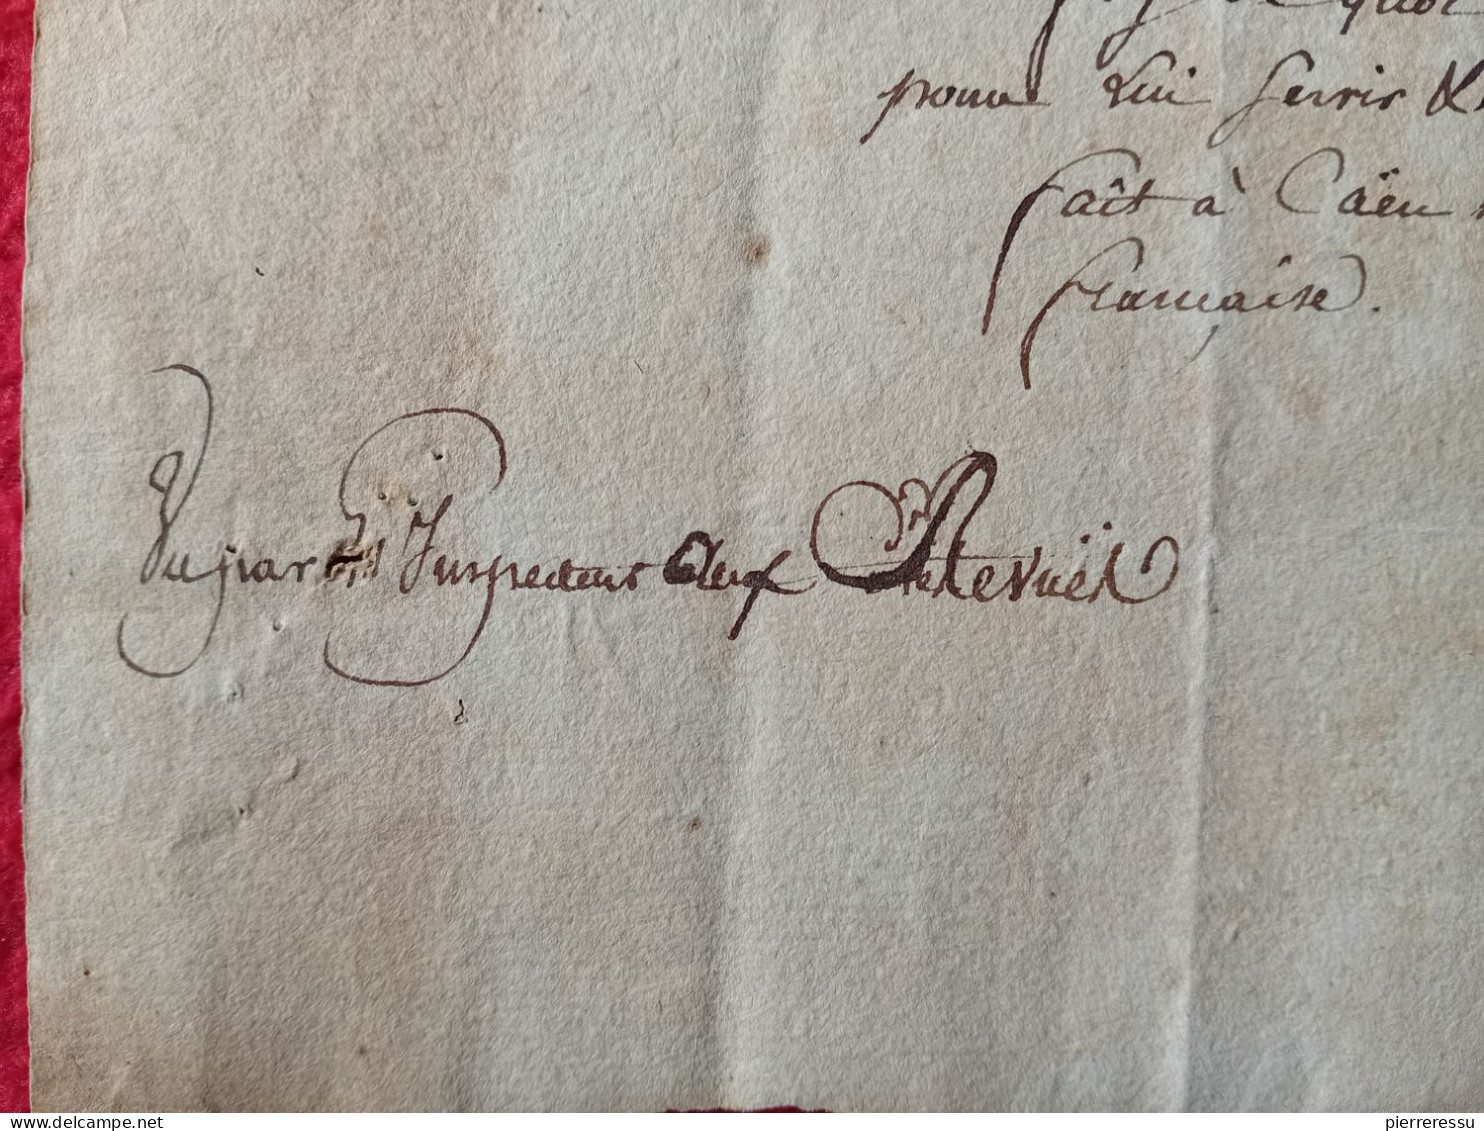 pour lui servir &
fait à Caën
française.
Vu par Inspecteur aux Revuës
delcampe.net
pierreressu